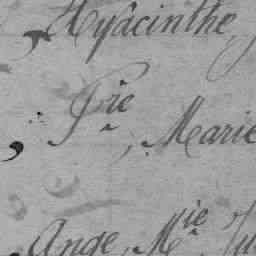 , Hyacinthe,
, Pie, Marie
, Ange, Mie